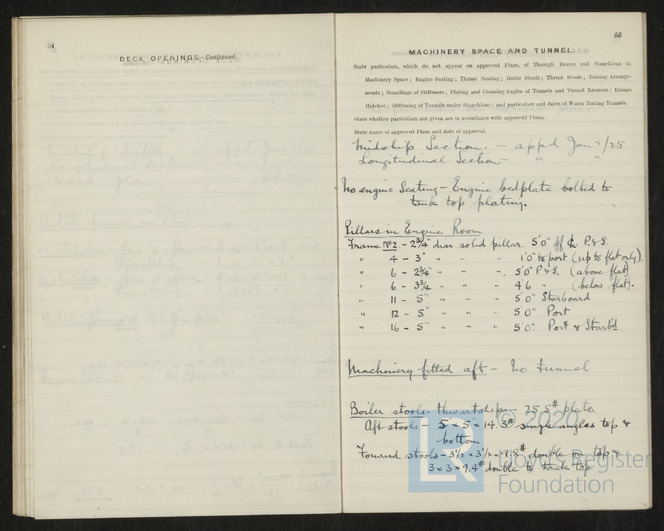 54
DECK OPENINGS—Continued.
55
MACHINERY SPACE AND TUNNEL.
State particulars, which do not appear on approved Plans, of Through Beams and Stanchions in
Machinery Space; Engine Seating; Thrust Seating; Boiler Stools; Thrust Stools; Boxing Arrange-
ments; Scantlings of Stiffeners; Plating and Coaming Angles of Tunnels and Tunnel Recesses; Escape
Hatches; Stiffening of Tunnels under Stanchions; and particulars and dates of Water Testing Tunnels.
State whether particulars not given are in accordance with approved Plans.
State name of approved Plans and date of approval.
Midship Section. — appd Jan /25
Longitudinal Section — " "
No engine Seating — Engine bedplate bolted to
tank top plating.
Pillars in Engine Room
Frame No 2 - 2¾" diar solid pillar 5'0" off ℄ P & S.
" 4 - 3" " " " 1'0" to port (up to flat only).
" 6 - 2¾" " " " 5'0" P & S. (above flat)
" 6 - 3¾" " " " 4 6 " (below flat).
" 11 - 5" " " " 5 0" Starboard
" 12 - 5" " " " 5 0" Port
" 16 - 5" " " " 5 0" Port & Starbd
Machinery fitted aft — No tunnel
Boiler stools - thwartships — 25.5# plates
Aft stools — 5 × 5 × 14.3# single angles top &
bottom
Forward stools - 3½ × 3½ × # double on top &
3 × 3 × 9.4# double to tank top
© 2020
LR
Lloyd's Register
Foundation